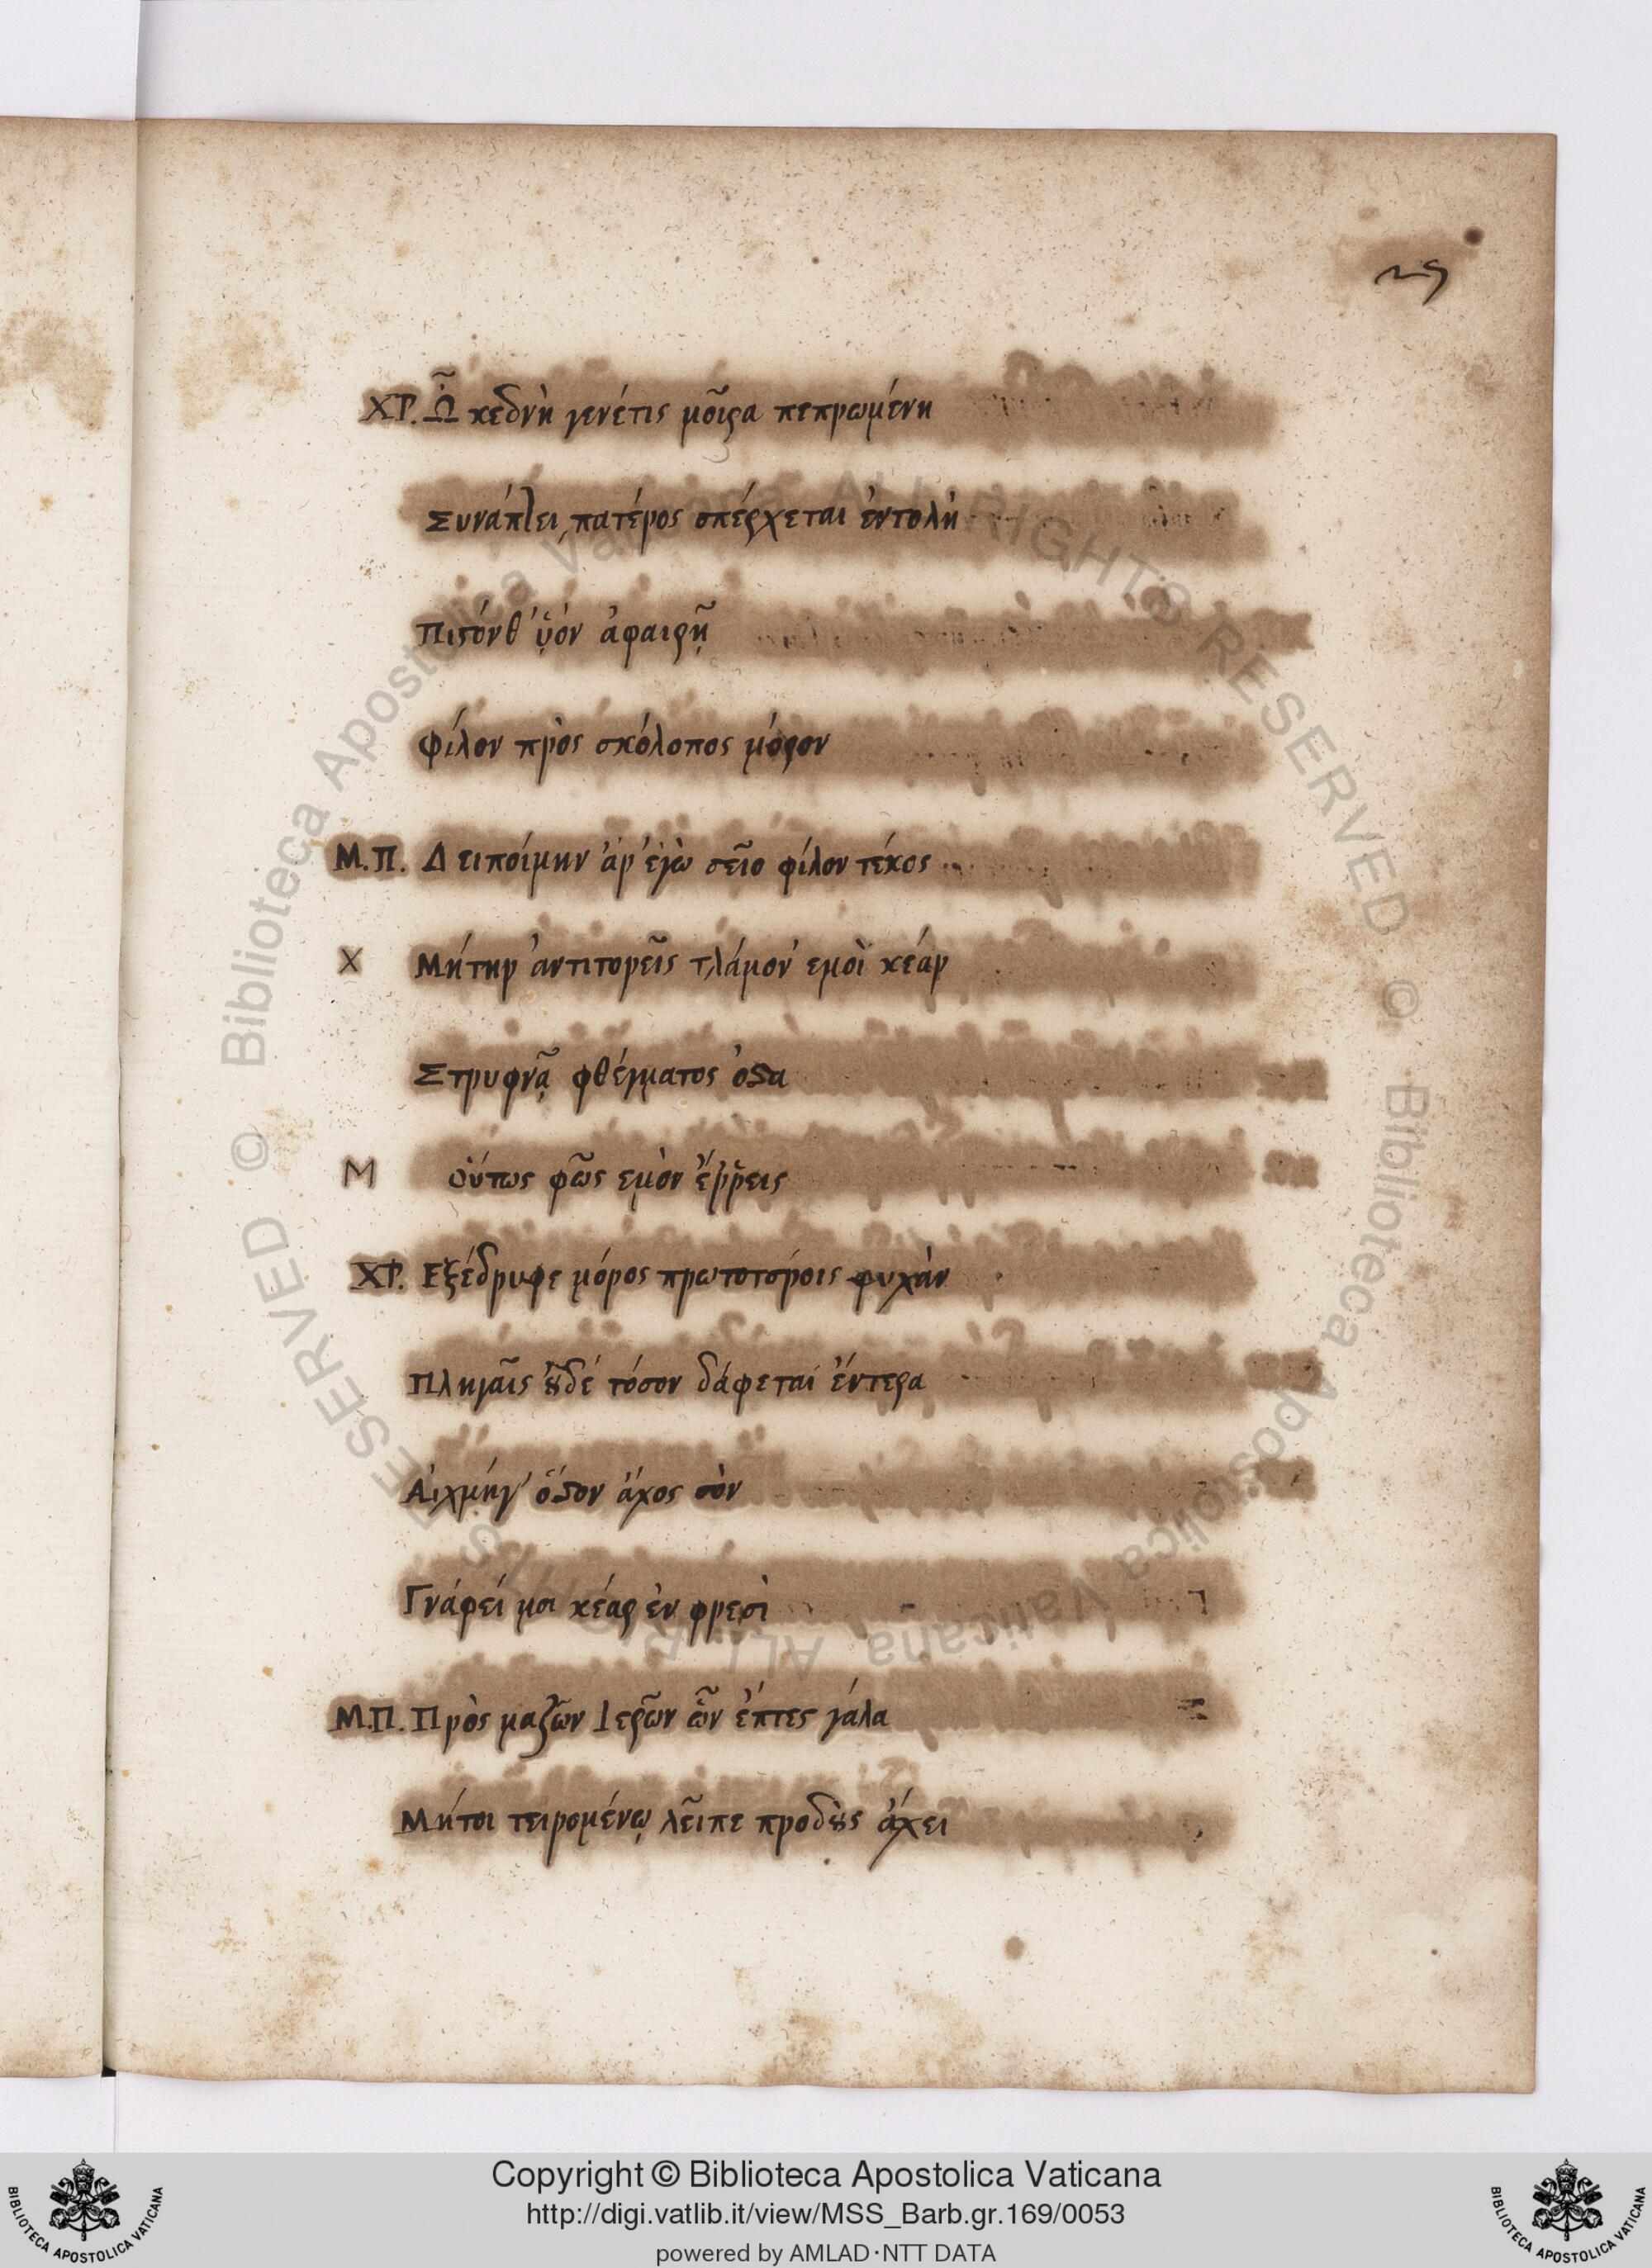 29
ΧΡ. Ὦ κεδνὴ γενέτις μοῖρα πεπρωμένη
Συνάπτει, πατέρος σπέρχεται ἐντολὴ
Πιστόνθ' ὑὸν ἀφαιρῇ
Φίλον πρὸς σκόλοπος μόρον
Μ.Π. Δειποίμην ἀρ' ἐγὼ σεῖο φίλον τέκος
Χ Μήτηρ ἀντιτορεῖς τλάμον' εμοὶ κέαρ
Στρυφνᾷ φθέγματος ὀστα
Μ ὁύτως φῶς εμὸν ἔῤῥεις
ΧΡ. Εξέδρυφε μόρος πρωτοτόροις ψυχὰν
Πληγαῖς οὐδέ τόσον δάφεταί ἔντερα
Αἰχμήγ' ὅσον ἄχος σὸν
Γνάφεί μοι κέαρ ἐν φρεσὶ
Μ.Π. Πρὸς μαζῶν Ιερῶν ὧν ἔπτες γάλα
Μήτοι τειρομένῳ λεῖπε προδοὺς ἄχει
Copyright © Biblioteca Apostolica Vaticana
http://digi.vatlib.it/view/MSS_Barb.gr.169/0053
powered by AMLAD·NTT DATA
BIBLIOTECA APOSTOLICA VATICANA
BIBLIOTECA APOSTOLICA VATICANA
© Biblioteca Apostolica Vaticana ALL RIGHTS RESERVED © Biblioteca Apostolica Vaticana ALL RIGHTS RESERVED